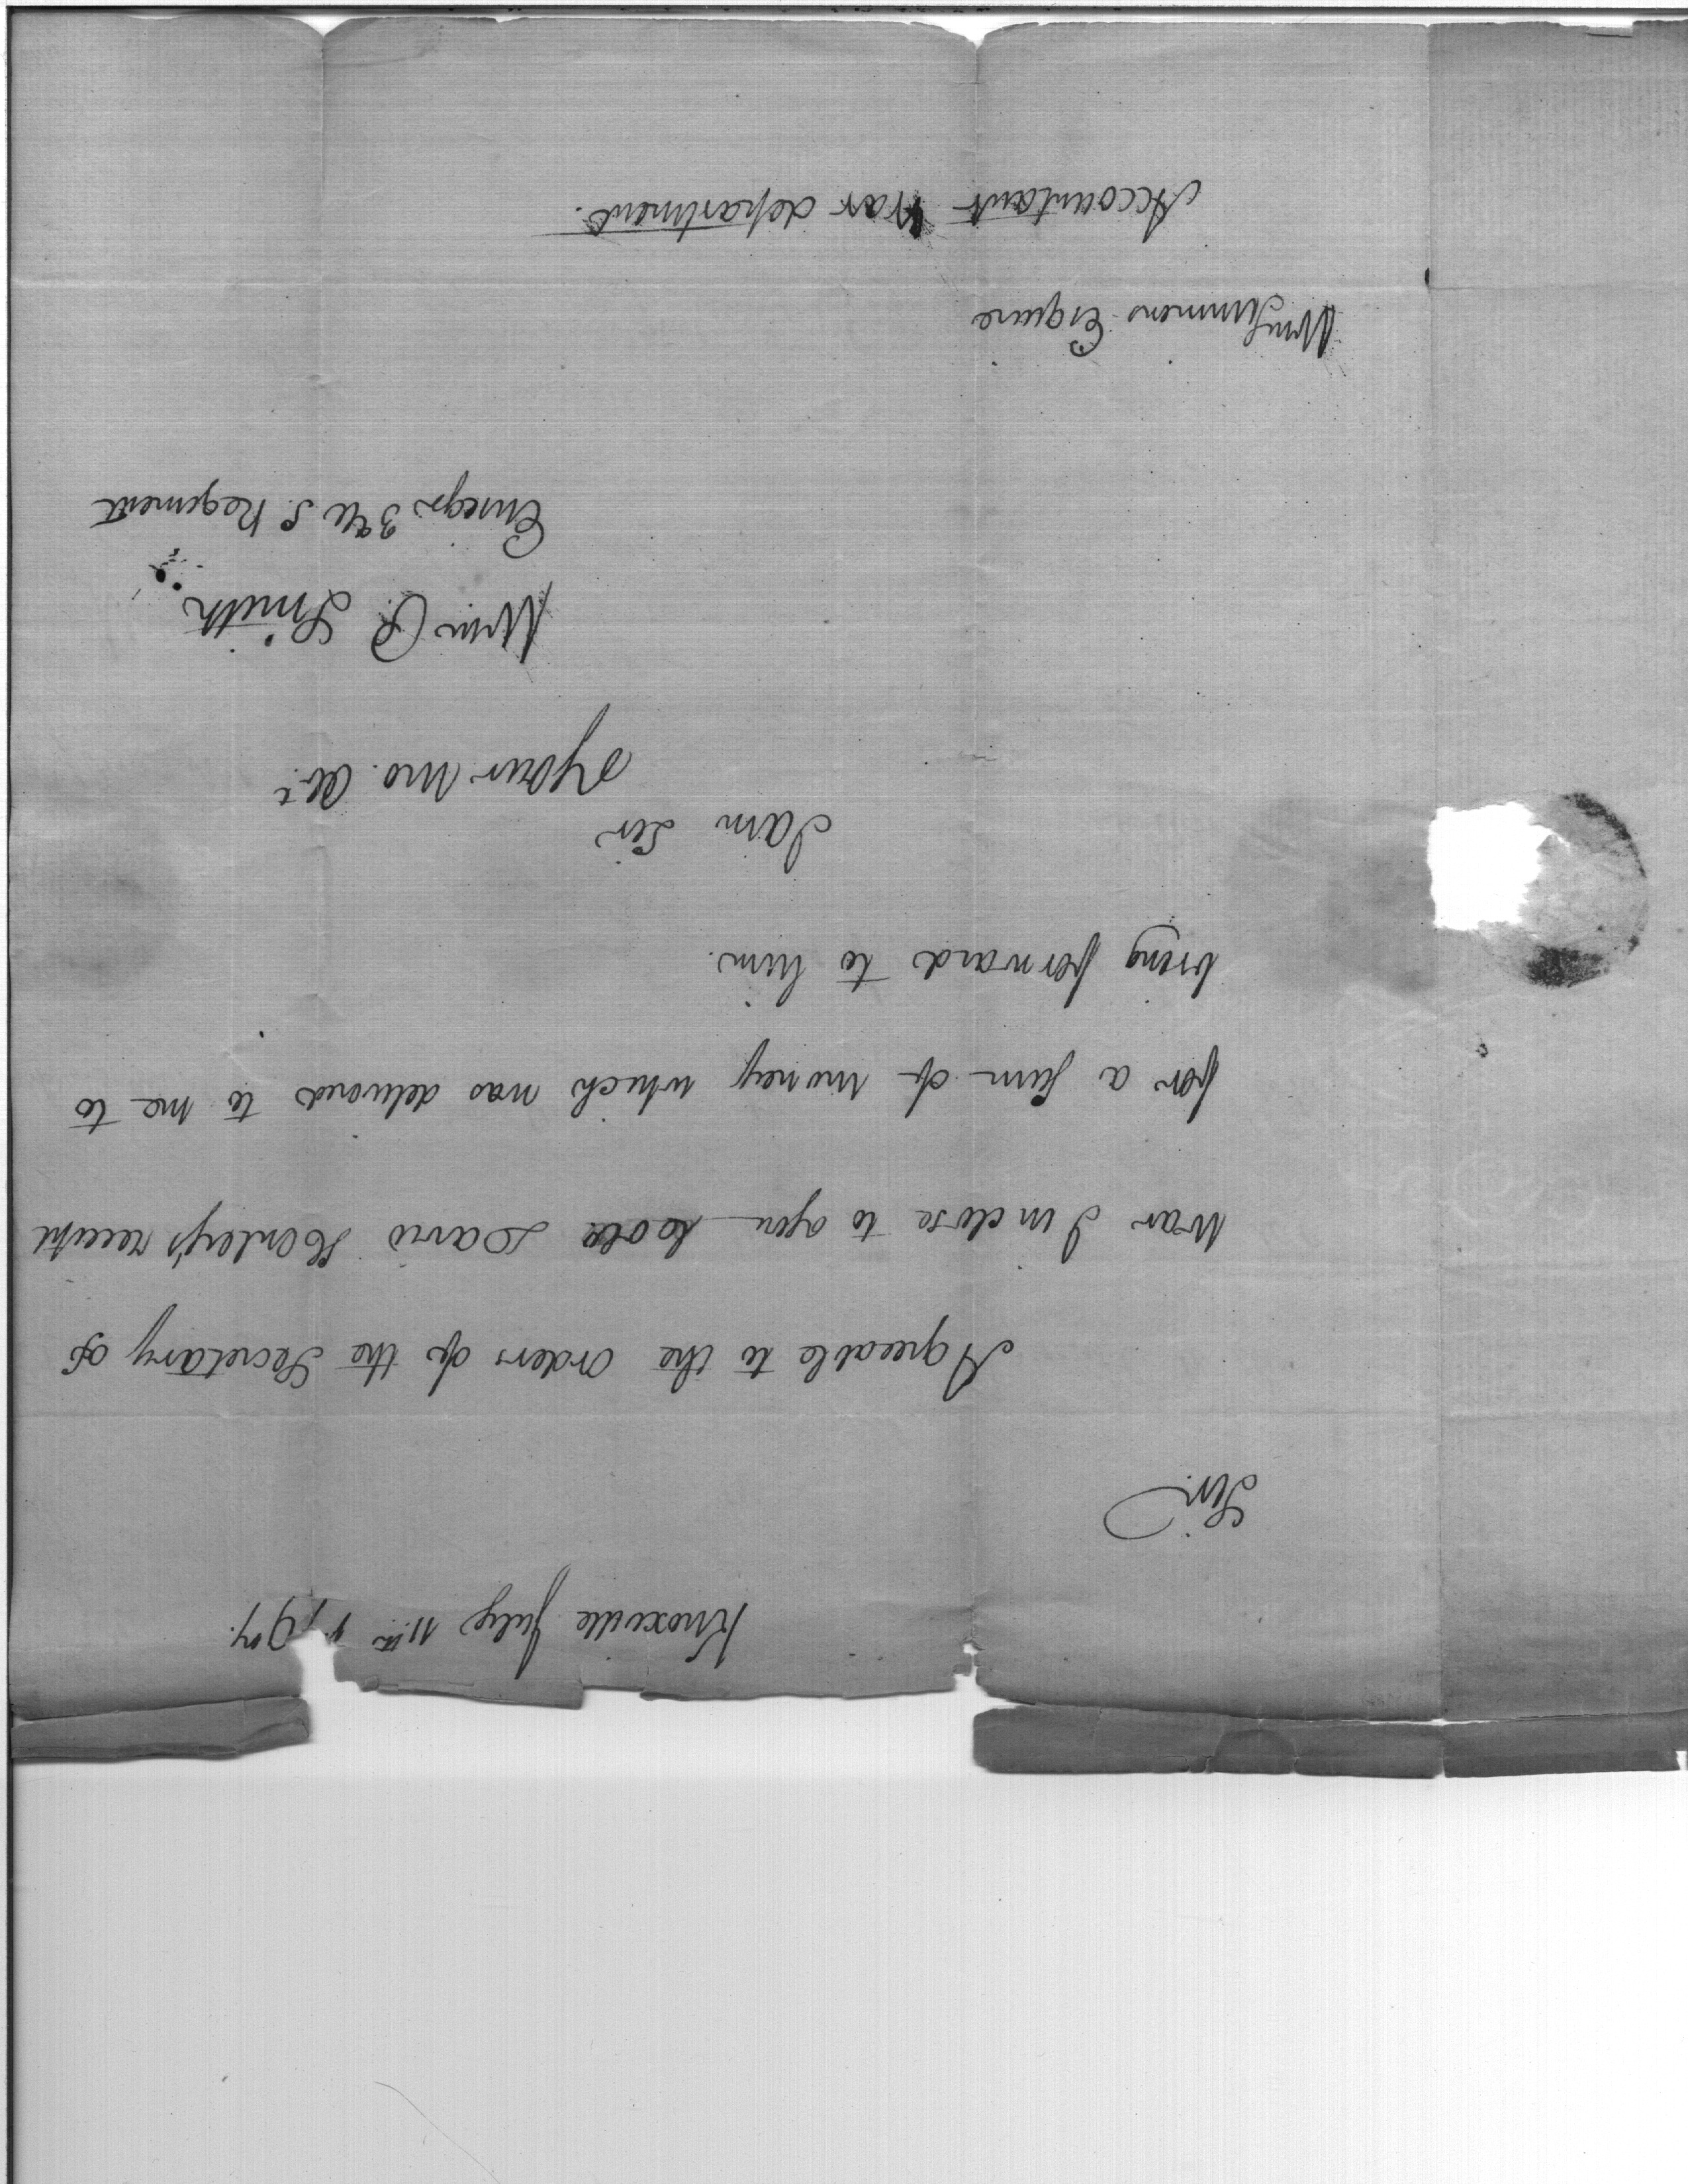 Knoxville July 11th 1797.
Sir.
Agreeable to the orders of the Secretary of
War I inclose to you David Henley's receipt
for a sum of money which was delivered to me to
bring forward to him.
I am Sir
Your Mo. Obt
Wm P. Smith
Ensign 3d U S. Regiment
Wm Simmons Esquire
Accountant War department.